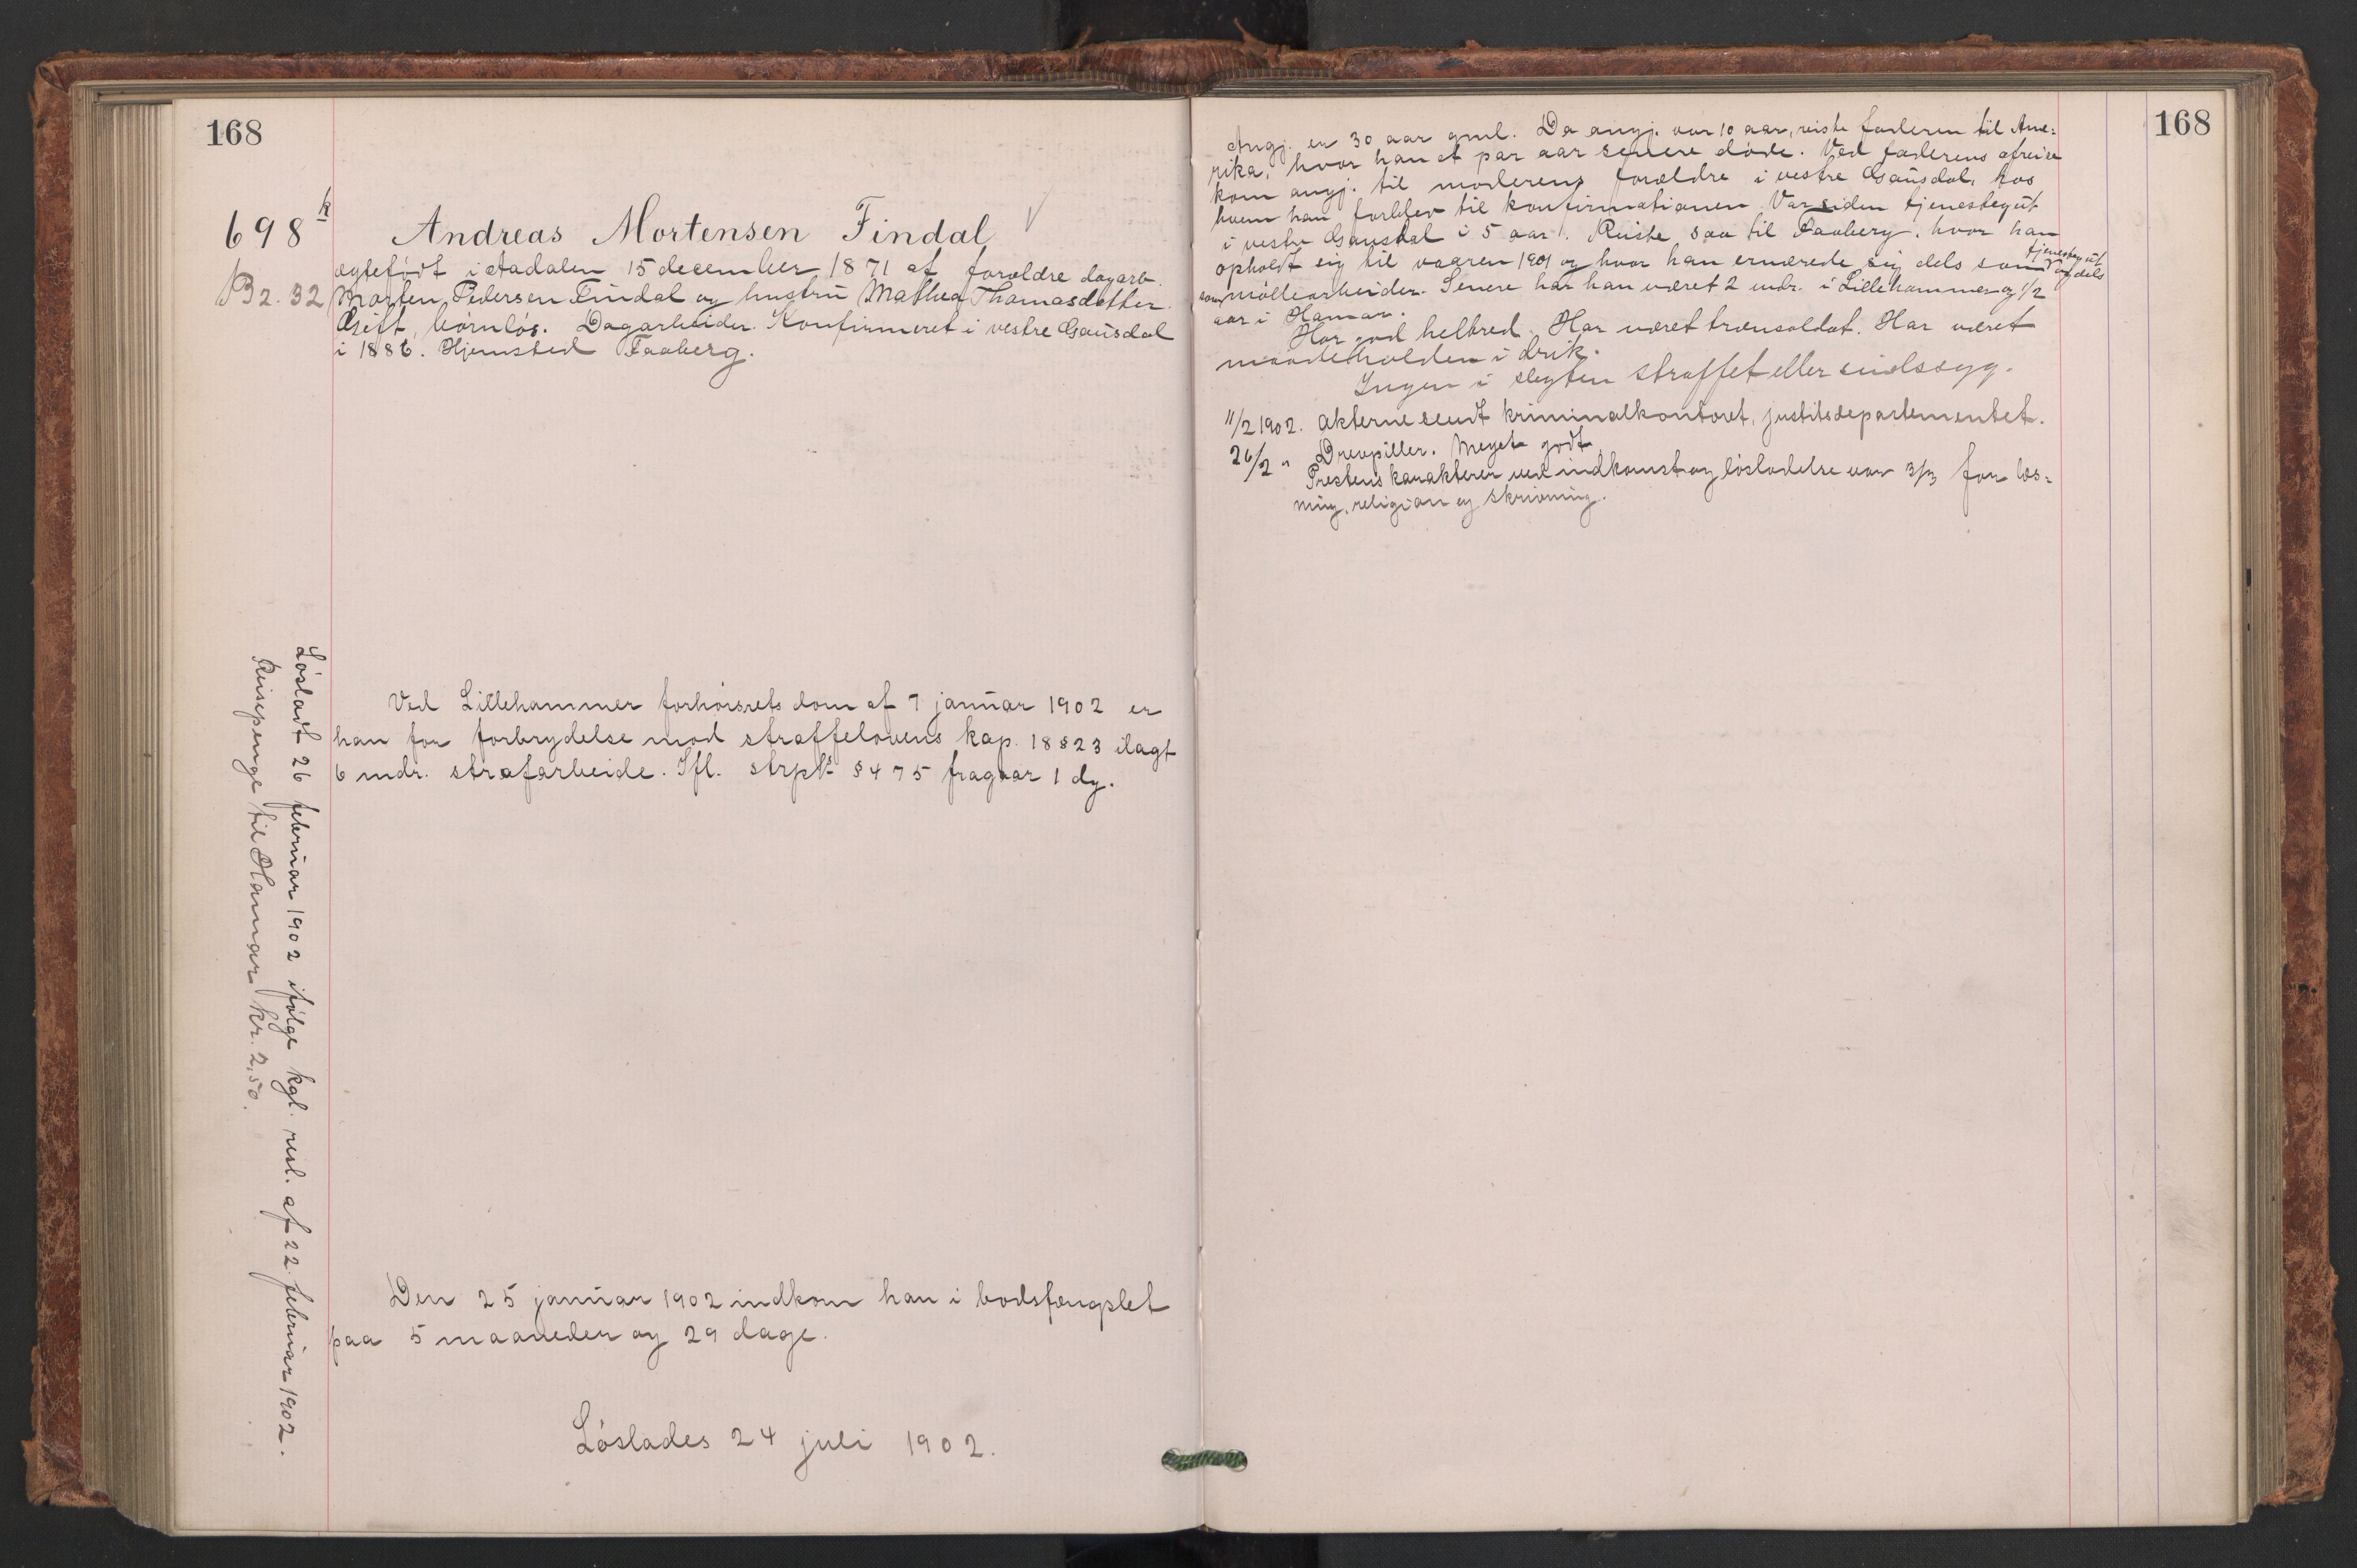 168
698 k
B 2. 32
Andreas Mortensen Findal
egtefødt i Aadalen 15 december 1871 af forældre dagarb.
Morten Pedersen Findal og hustru Mathea Thomasdatter.
Gift, børnløs. Dagarbeider. Konfirmeret i vestre Gausdal
i 1886. Hjemsted Faaberg.
Ved Lillehammer forhørsrets dom af 7 januar 1902 er
han for forbrydelse mod straffelovens kap. 18 § 23 ilagt
6 mdr. strafarbeide. Ifl. strpl. § 475 fragaar 1 dg.
Den 25 januar 1902 indkom han i bodsfængslet
paa 5 maaneder og 29 dage.
Løslades 24 juli 1902.
Løsladt 26 februar 1902 ifølge kgl. resl. af 22 februar 1902.
Reisepenge til Hamar kr. 2,50.
168
Angj. er 30 aar gml. Da angj. var 10 aar, reiste faderen til Ame=
rika, hvor han et par aar senere døde. Ved faderens afreise
kom angj. til moderens forældre i vestre Gausdal, hos
hvem han forblev til konfirmationen. Var siden tjenestegut
i vestre Gausdal i 5 aar. Reiste saa til Faaberg, hvor han
opholdt sig til vaaren 1901 og hvor han ernærede sig dels som tjenestegut og dels
som møllearbeider. Senere har han været 2 mdr. i Lillehammer og 1/2
aar i Hamar.
Har god helbred. Har været trænsoldat. Har været
maadeholden i drik.
Ingen i slegten straffet eller sindssyg.
11/2 1902. Akterne sendt kriminalkontoret, justitsdepartementet.
26/2 " Drevpiller. Meget godt.
Prestens karakterer ved indkomst og løsladelse var 3/3 for læs=
ning, religion og skrivning.